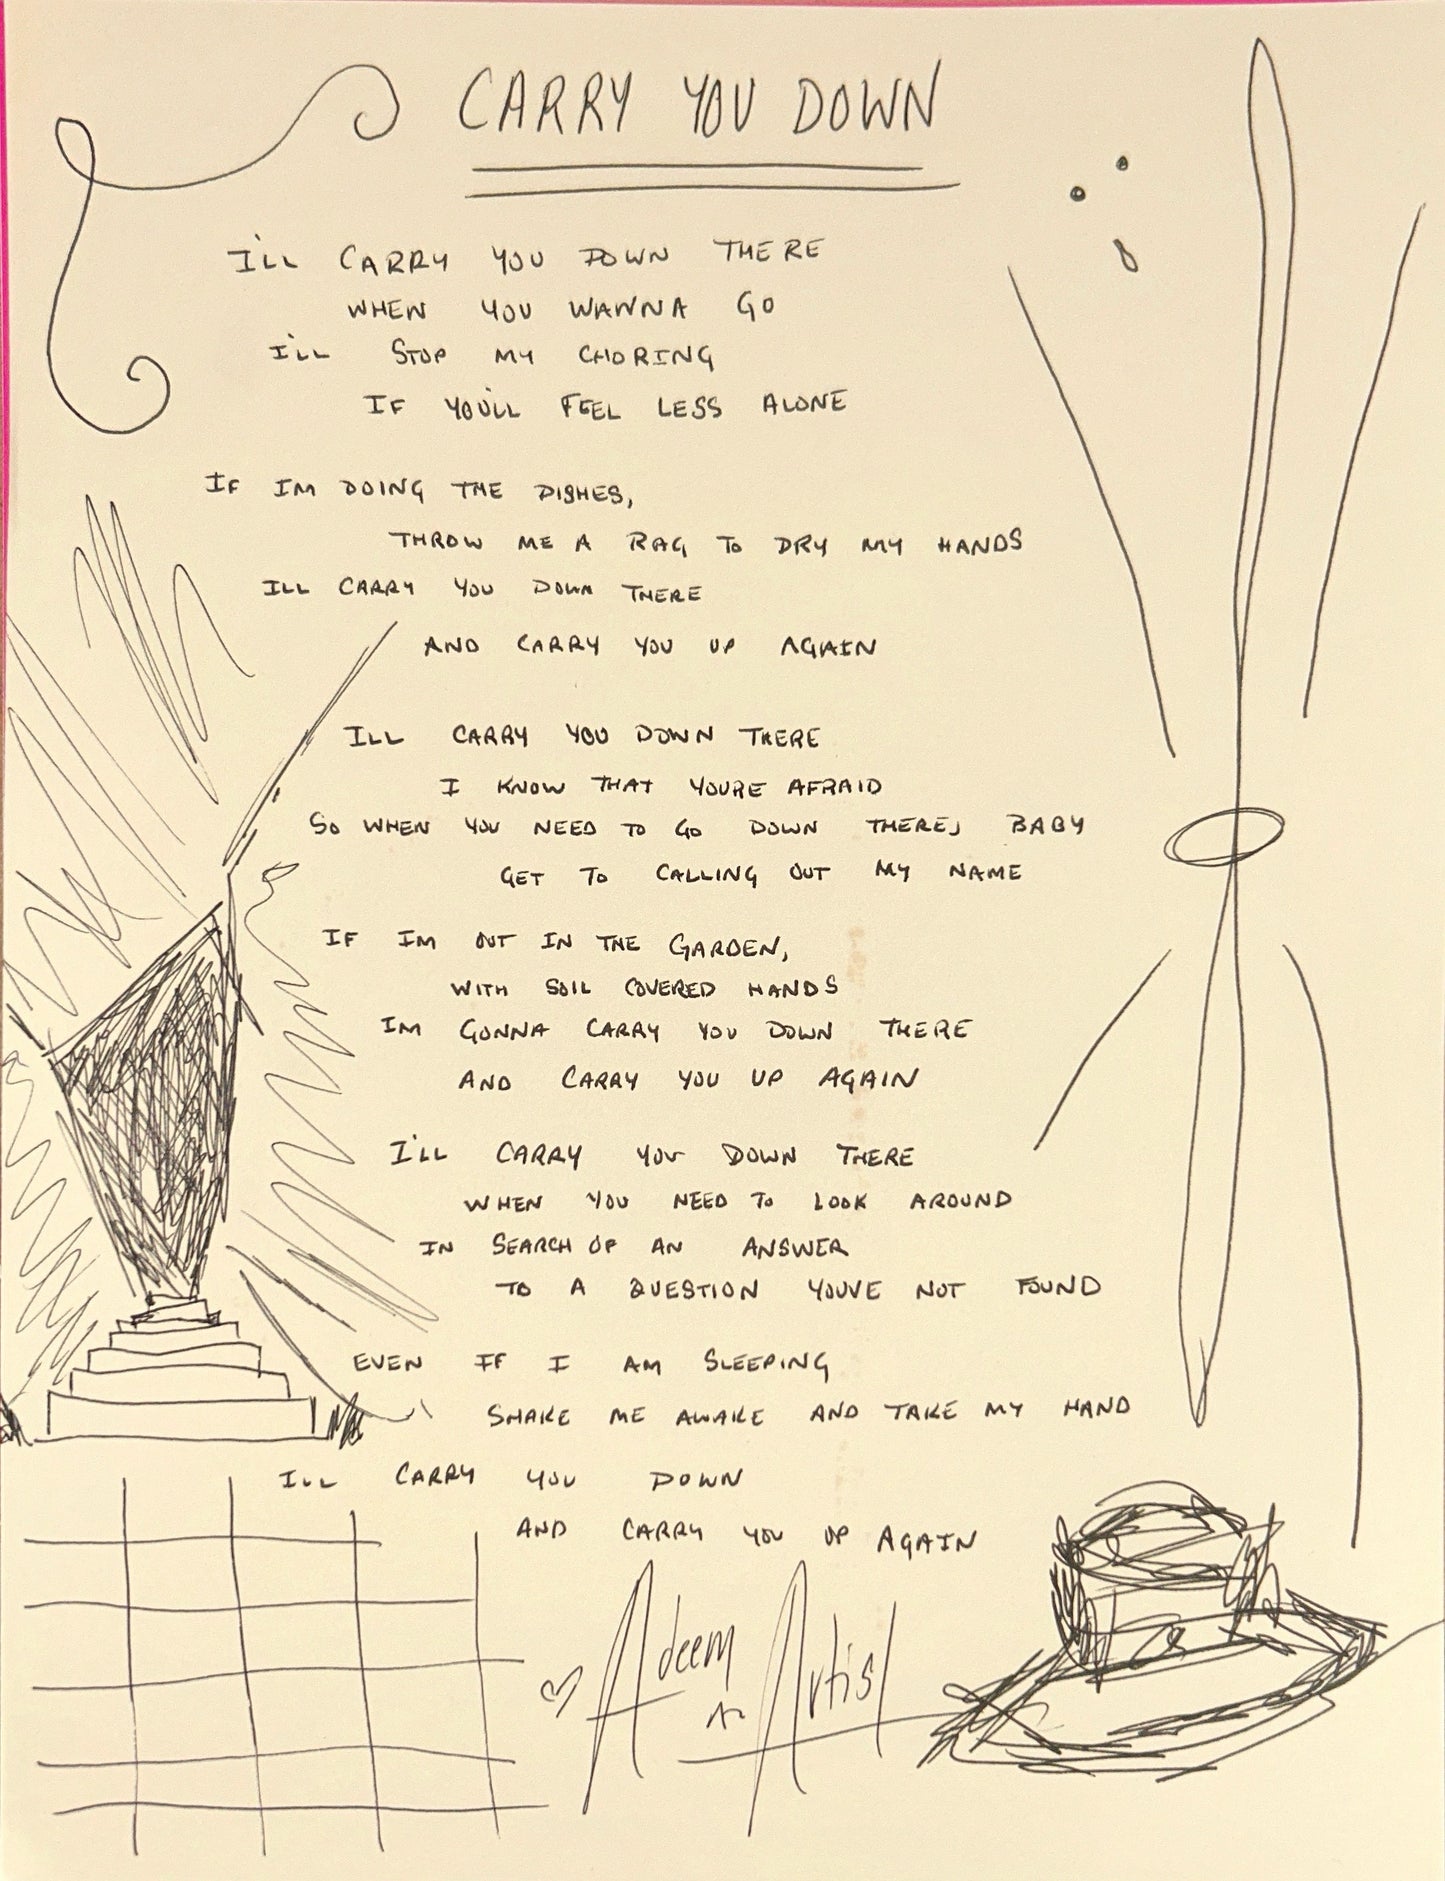 CARRY YOU DOWN
I'LL CARRY YOU DOWN THERE
WHEN YOU WANNA GO
I'LL STOP MY CHORING
IF YOU'LL FEEL LESS ALONE
IF IM DOING THE DISHES,
THROW ME A RAG TO DRY MY HANDS
ILL CARRY YOU DOWN THERE
AND CARRY YOU UP AGAIN
ILL CARRY YOU DOWN THERE
I KNOW THAT YOURE AFRAID
SO WHEN YOU NEED TO GO DOWN THERE, BABY
GET TO CALLING OUT MY NAME
IF IM OUT IN THE GARDEN,
WITH SOIL COVERED HANDS
IM GONNA CARRY YOU DOWN THERE
AND CARRY YOU UP AGAIN
I'LL CARRY YOU DOWN THERE
WHEN YOU NEED TO LOOK AROUND
IN SEARCH OF AN ANSWER
TO A QUESTION YOUVE NOT FOUND
EVEN IF I AM SLEEPING
SHAKE ME AWAKE AND TAKE MY HAND
ILL CARRY YOU DOWN
AND CARRY YOU UP AGAIN
♡ Adeem the Artist